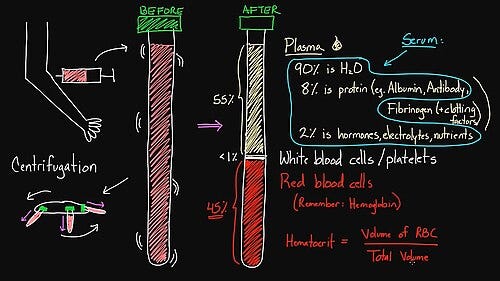 BEFORE
AFTER
Plasma
Serum:
90% is H₂O
8% is protein (eg. Albumin, Antibody,
Fibrinogen (+clotting
factors)
2% is hormones, electrolytes, nutrients
55%
<1%
White blood cells/platelets
Centrifugation
Red blood cells
45%
(Remember: Hemoglobin)
Hematocrit = Volume of RBC
Total Volume